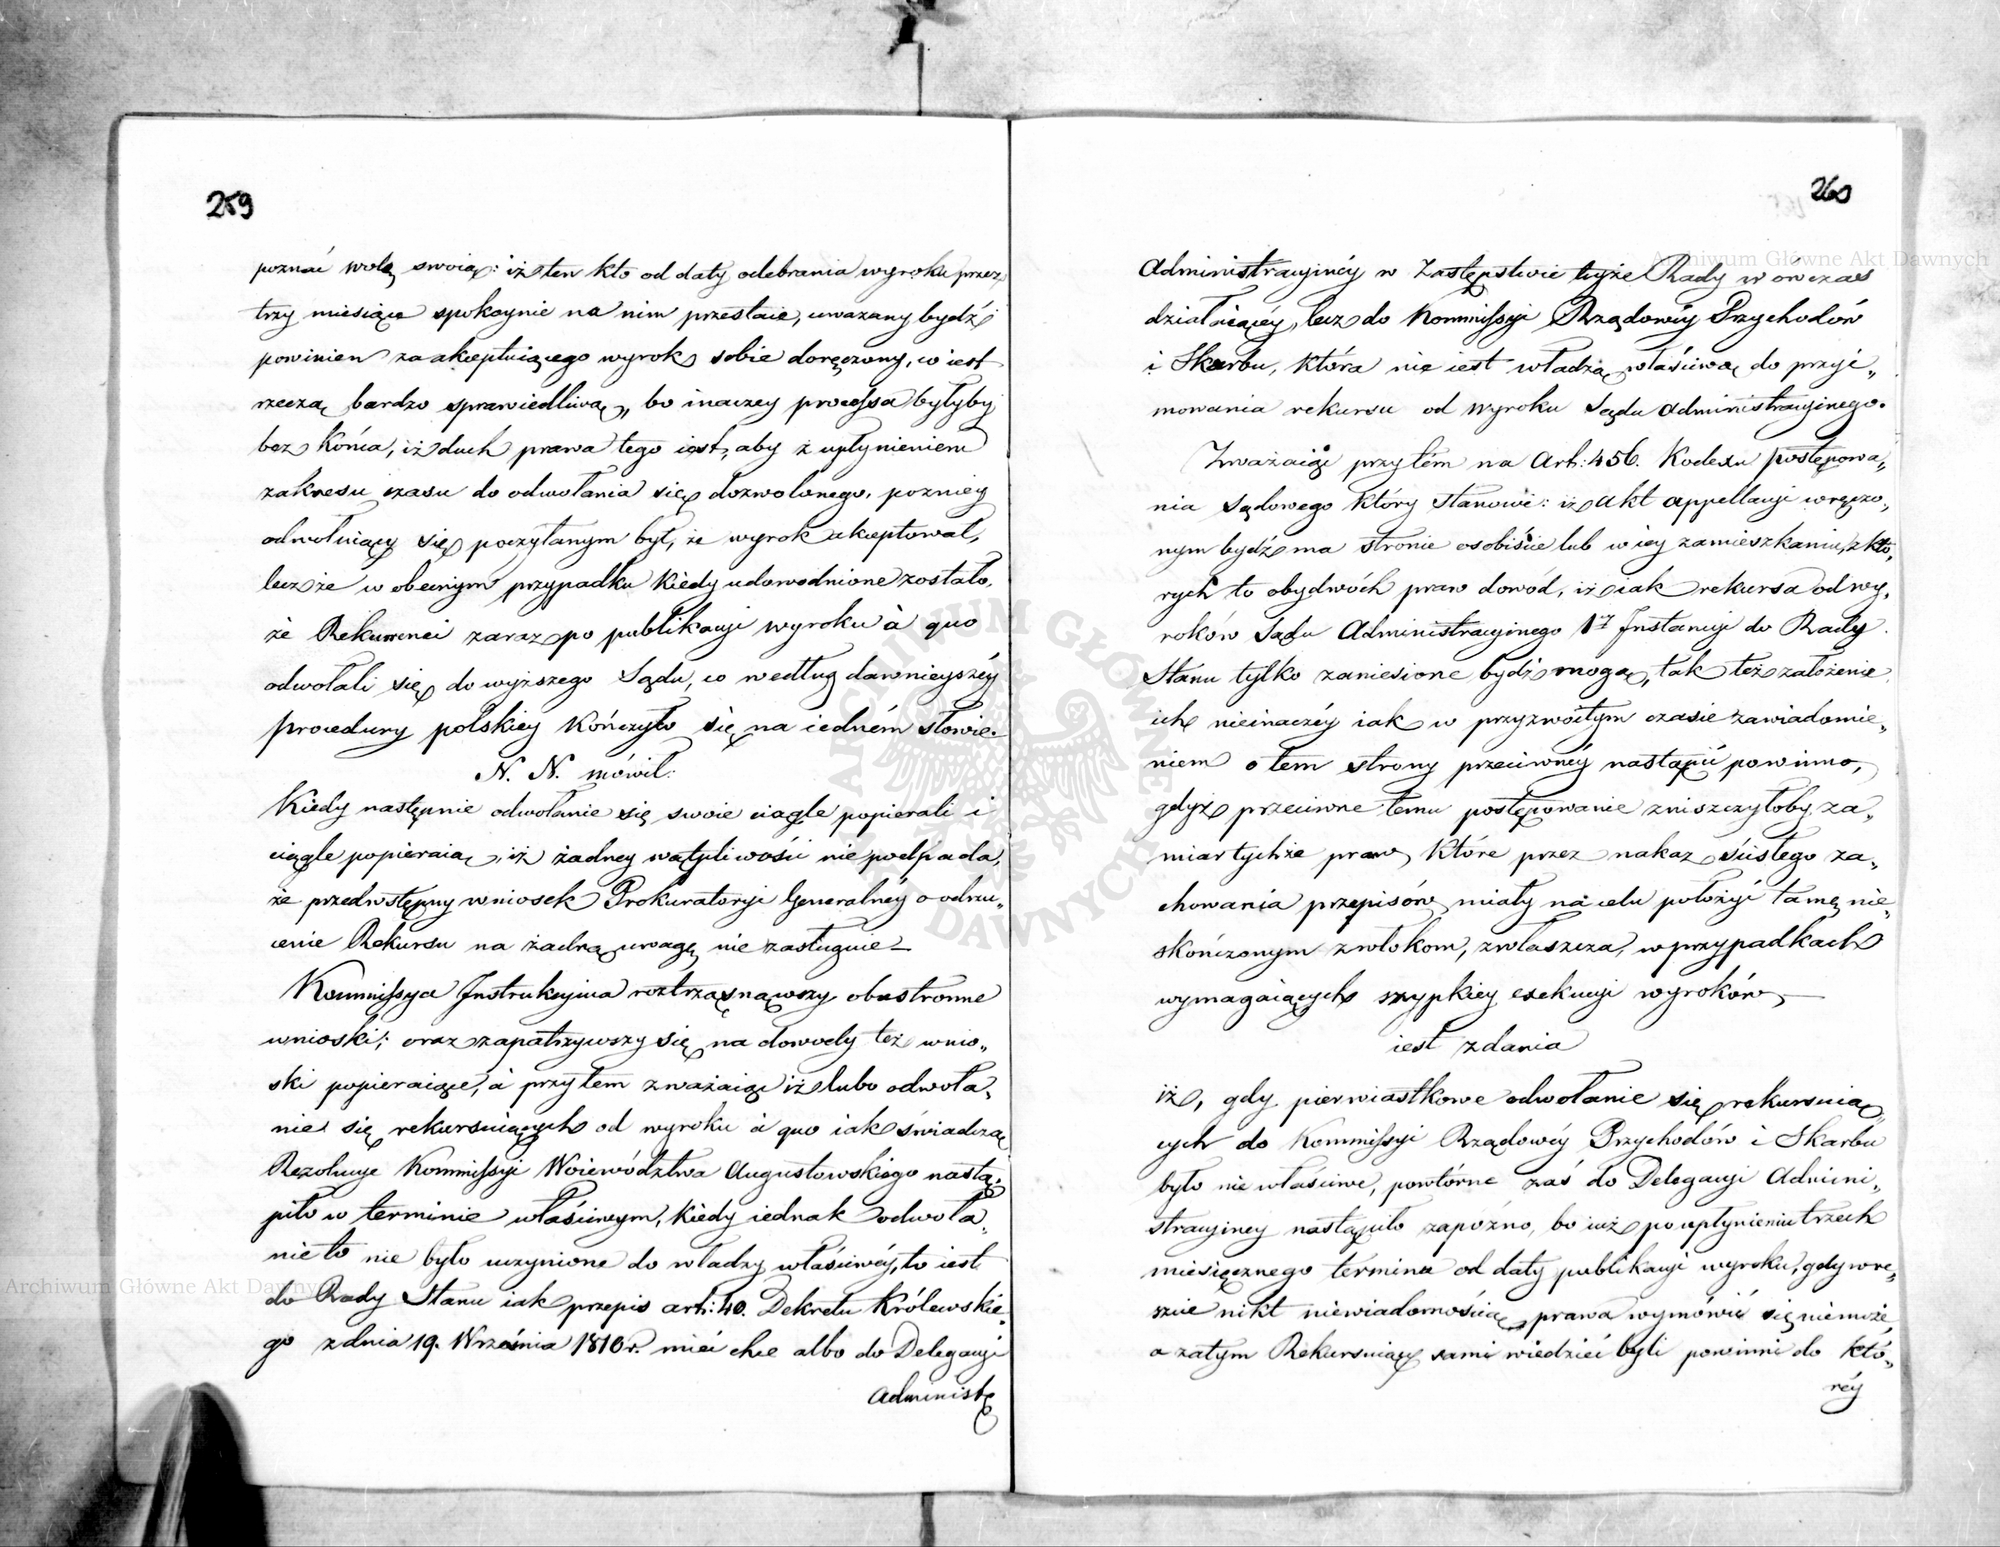 259
poznać wolę swoią: iż ten kto od daty odebrania wyroku przez
trzy miesiące spokoynie na nim przestaie, uważany bydź
powinien za akceptuiącego wyrok sobie doręczony, co iest
rzeczą bardzo sprawiedliwą, bo inaczey processa byłyby
bez końca, iż duch prawa tego iest, aby z upłynieniem
zakresu czasu do odwołania się dozwolonego, pozniey
odwołuiący się poczytanym był, że wyrok akceptował,
lecz że w obecnym przypadku kiedy udowodnione zostało,
że Rekurenci zaraz po publikacyi wyroku à quo
odwołali się do wyższego Sądu, co według dawnieyszéy
procedury polskiey kończyło się na iedném słowie.
N. N. mówił:
Kiedy następnie odwołanie się swoie ciągle popierali i
ciągle popieraią, iż żadney wątpliwości nie podpada,
że przedwstępny wniosek Prokuratoryi Generalnéy o odrzu„
cenie Rekursu na żadną uwagę nie zasługuie—
Kommissya Instrukcyina roztrząsnąwszy obustronne
wnioski; oraz zapatrzywszy się na dowody też wnio„
ski popieraiące, à przytem zważaiąc iż lubo odwoła„
nie się rekursuiących od wyroku à quo iak świadczą
Rezolucye Kommissyi Woiewództwa Augustowskiego nastą„
piło w terminie właściwym, kiedy iednak odwoła„
nie to nie było uczynione do władzy właściwéy, to iest
do Rady Stanu iak przepis art: 40. Dekretu Królewskie„
go z dnia 19. Września 1810 r. mieć chce albo do Delegacyi
Administ
260
Administracyinéy w Zastępstwie teyże Rady wówczas
działaiącéy, lecz do Kommissyi Rządowéy Przychodów
i Skarbu, która nie iest władzą właściwą do przyi„
mowania rekursu od wyroku Sądu Administracyinego.
Zważaiąc przytém na Art: 456. Kodexu postępowa„
nia Sądowego który stanowi: iż akt appellacyi wręczo„
nym bydź ma stronie osobiście lub w iey zamieszkaniu, z któ„
rych to obydwóch praw dowód, iż iak rekursa od wy„
roków Sądu Administracyinego 1éy Instancyi do Rady
Stanu tylko zaniesione bydź mogą, tak też założenie
ich nieinaczéy iak w przyzwoitym czasie zawiadomie„
niem o tem strony przeciwnéy nastąpić powinno,
gdyż przeciwne temu postępowanie zniszczyłoby za„
miar tychże praw, które przez nakaz ścisłego za„
chowania przepisów, miały na celu położyć tamę nie„
skończonym zwłokom, zwłaszcza, w przypadkach
wymagaiących szypkiey exekucyi wyroków,—
iest zdania
iż, gdy pierwiastkowe odwołanie się rekursuią„
cych do Kommissyi Rządowéy Przychodów i Skarbu
było nie właściwe, powtórne zaś do Delegacyi Admini„
stracyiney nastąpiło zapóźno, bo iuż po upłynieniu trzech
miesięcznego terminu od daty publikacyi wyroku, gdy wre„
szcie nikt niewiadomością prawa wymówić się niemoże,
a zatym Rekursuiący sami wiedzieć byli powinni do któ„
réy
Archiwum Główne Akt Dawnych
Archiwum Główne Akt Dawnych
ARCHIWUM GŁÓWNE AKT DAWNYCH